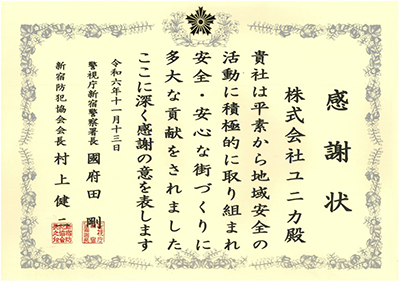 感謝状
株式会社ユニカ殿
貴社は平素から地域安全の
活動に積極的に取り組まれ
安全・安心な街づくりに
多大な貢献をされました
ここに深く感謝の意を表します
令和六年十一月十三日
警視庁新宿警察署長 國府田 剛
新宿防犯協会会長 村上健一